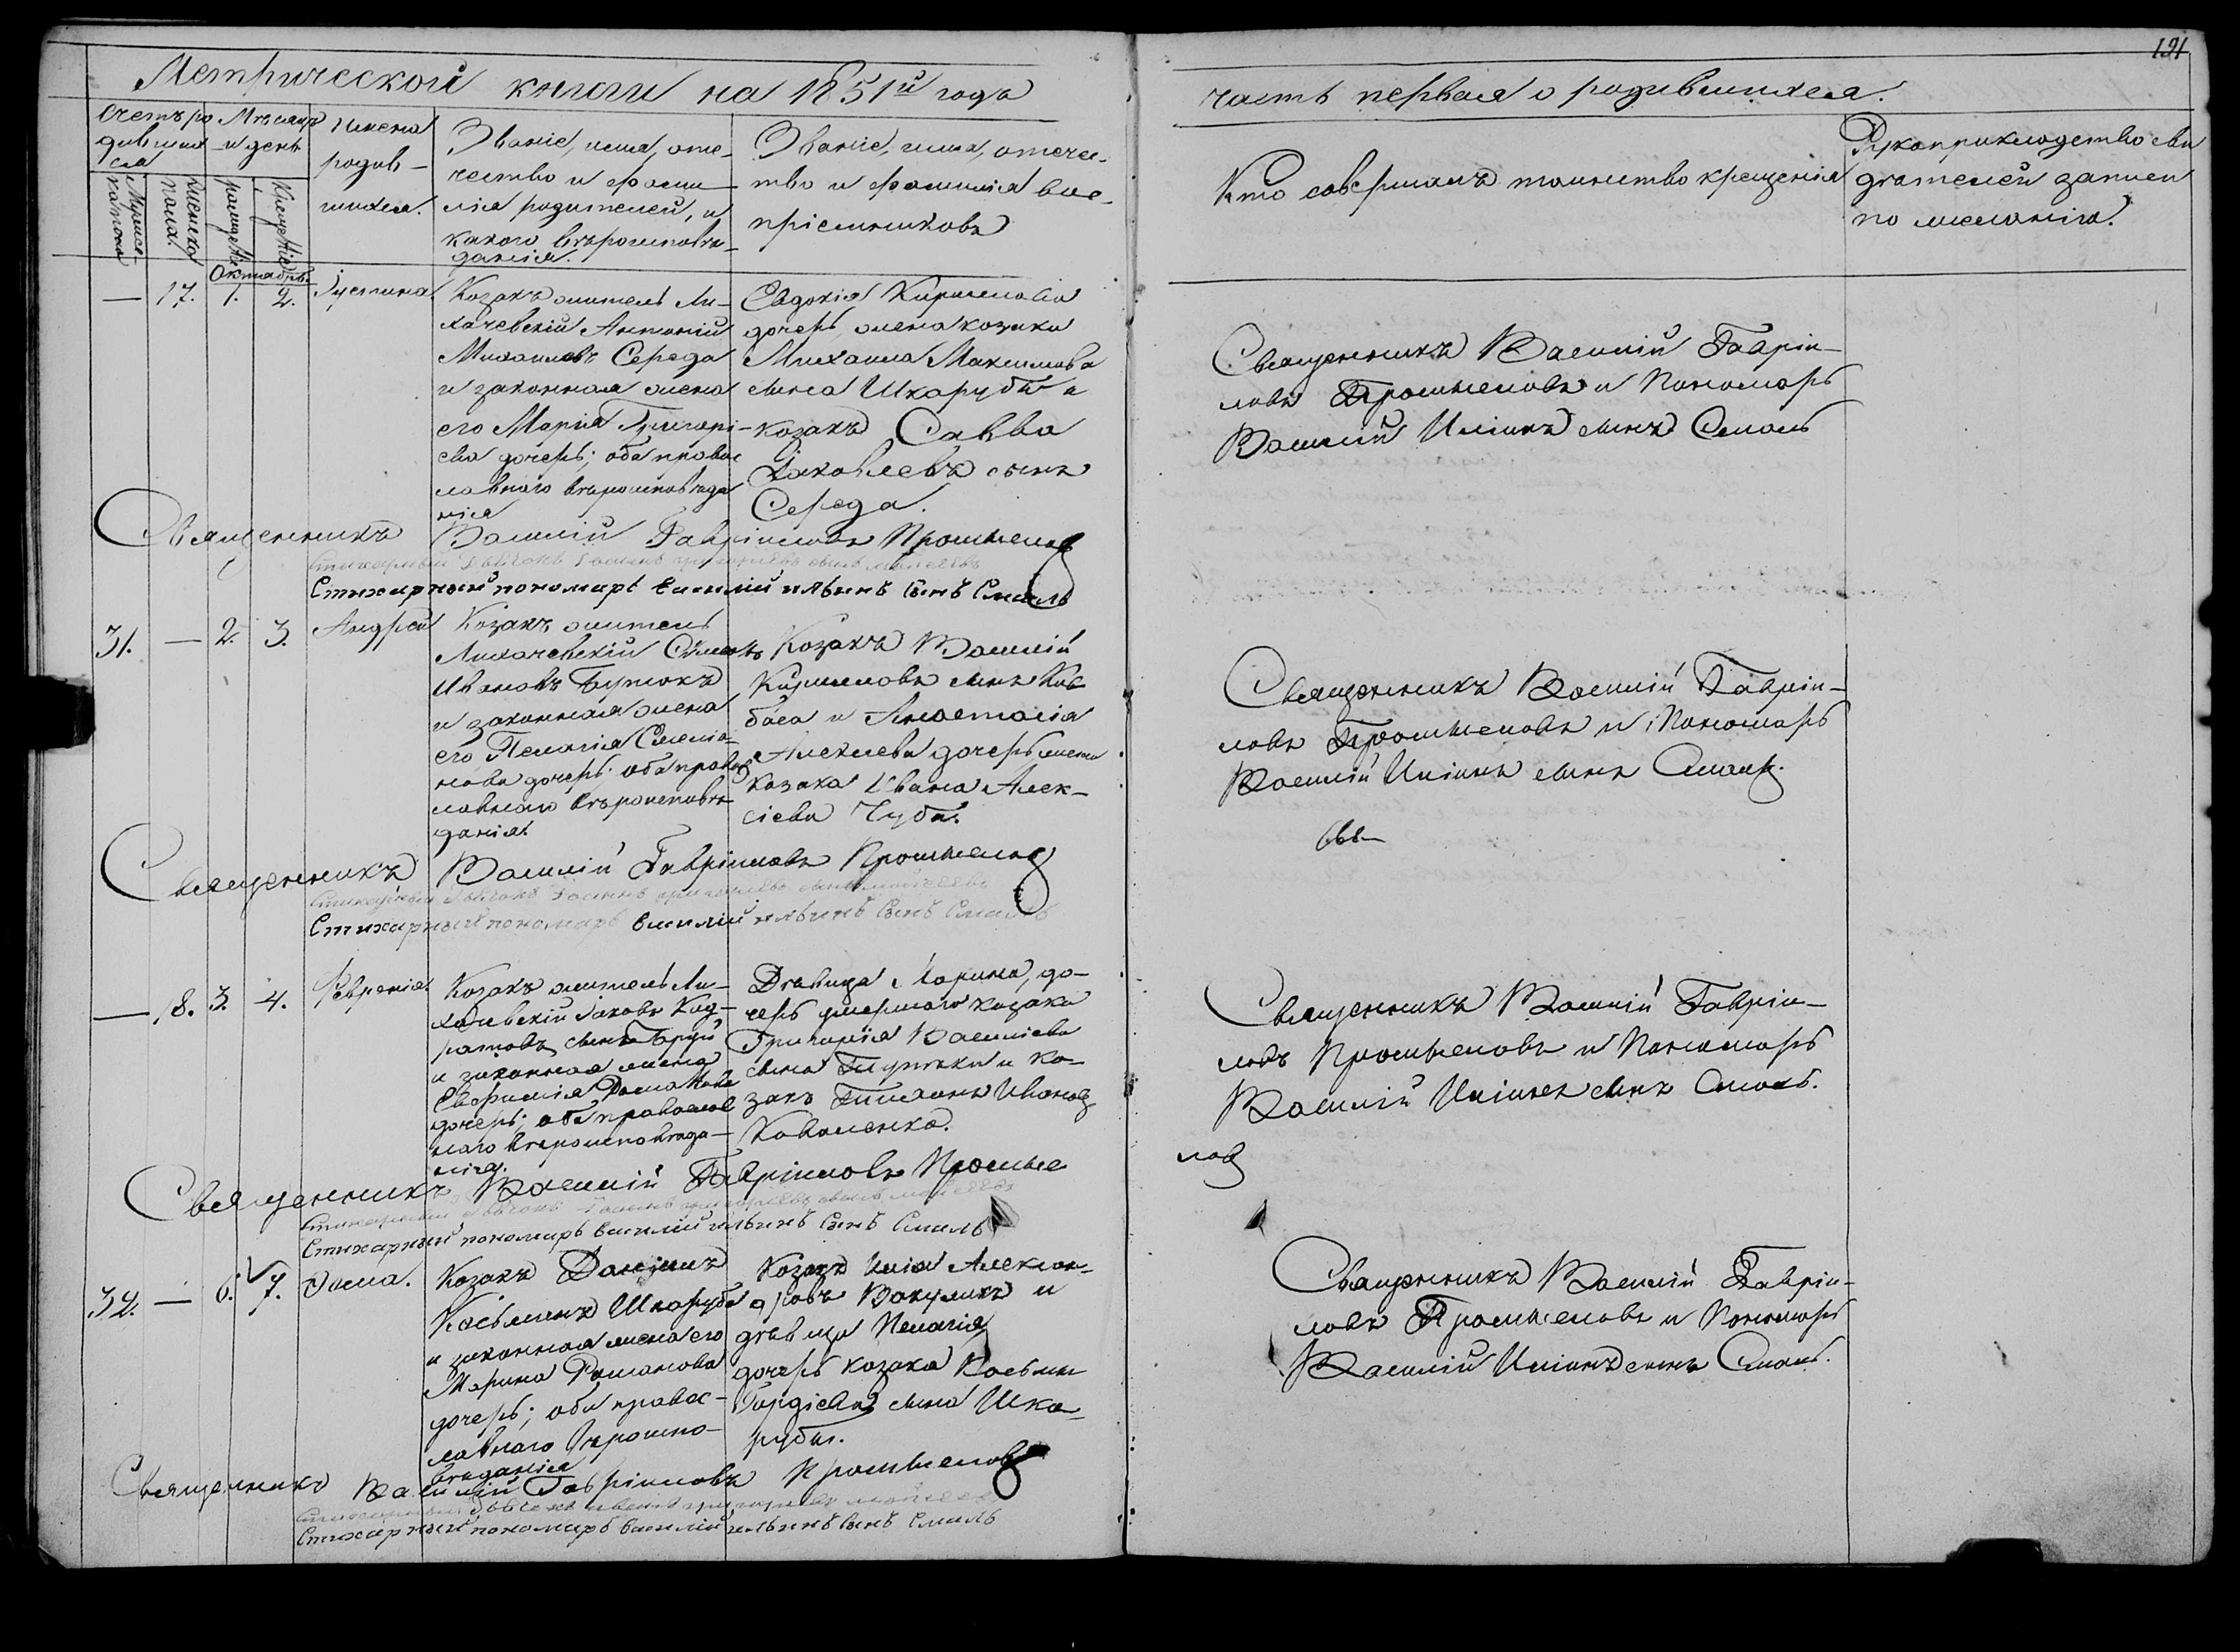 191
Метрической книги на 1851й года
часть первая о родившихся.
Счетъ ро
дивших
ся
Мужеска пола
Женска пола
Мѣсяцъ
и день
рожденія
крещенія
Имена
родив-
шихся.
Званіе, имя, оте-
чество и фами-
лія родителей, и
какого вѣроисповѣ-
данія.
Званіе, имя, отечес-
тво и фамилія вос-
пріемниковъ
Кто совершалъ таинство крещенія
Рукоприкладство сви
дѣтелей записи
по желанію.
Октябрь
— 17. 1. 2. Іустина
Козакъ житель Ли-
хачевскій Антоній
Михаиловъ Середа
и законная жена
его Марія Григорі-
ева дочерь; оба правос
лавнаго вѣроисповѣда
нія
Евдокія Кирилова
дочерь, жена козака
Михаила Максимова
сына Шкарубы и
козакъ Савва
Яковлевъ сынъ
Середа.
Священникъ Василій Гаврiи-
ловъ и Пономарь
Василій Иліинъ сынъ Смаль
Священникъ Василій Гавріиловъ
Стихарный пономарь василій ильинъ сынъ Смаль
31. — 2. 3. Андрей
Козакъ житель
Лихачевскій
Ивановъ
и законная жена
его Пелагія Симео-
нова дочерь; оба правос
лавнаго вѣроисповѣ-
данія.
Козакъ Василій
Кириловъ сынъ Ков
баса и Анастасія
Алексіева дочерь жена
козака Ивана Алек-
сіева Чуба.
Священникъ Василій Гавріи-
ловъ и Пономарь
Василій Иліинъ сынъ Смаль.
Священникъ Василій Гавріиловъ
Стихарный пономарь василій ильинъ сынъ Смаль
— 18. 3. 4. Февронія
Козакъ житель Ли-
хачевскій Іаковъ Код-
ратовъ сынъ
и законная жена
Евфимія
дочерь; оба православ
наго вѣроисповѣда-
нія.
Дѣвица Марина, до-
черь умершаго козака
Григорія Василіева
сына и ко-
закъ Ивановъ
Коваленко.
Священникъ Василій Гавріи-
ловъ и Пономарь
Василій Иліинъ сынъ Смаль.
Священникъ Василій Гавріиловъ
Стихарный пономарь василій ильинъ сынъ Смаль
32. — 6. 7. Ѳома.
Козакъ Даніилъ
Косьминъ Шкаруба
и законная жена его
Марина Романова
дочерь; оба правос-
лавнаго вѣроиспо-
вѣданія
Козакъ Илія Алексан-
дровъ Вакуликъ и
дѣвица Пелагія
дочерь козака Косьмы
Гордіева сына Шка-
рубы.
Священникъ Василій Гавріи-
ловъ и Пономарь
Василій Иліинъ сынъ Смаль.
Священникъ Василій Гавріиловъ
Стихарный пономарь василій ильинъ сынъ Смаль